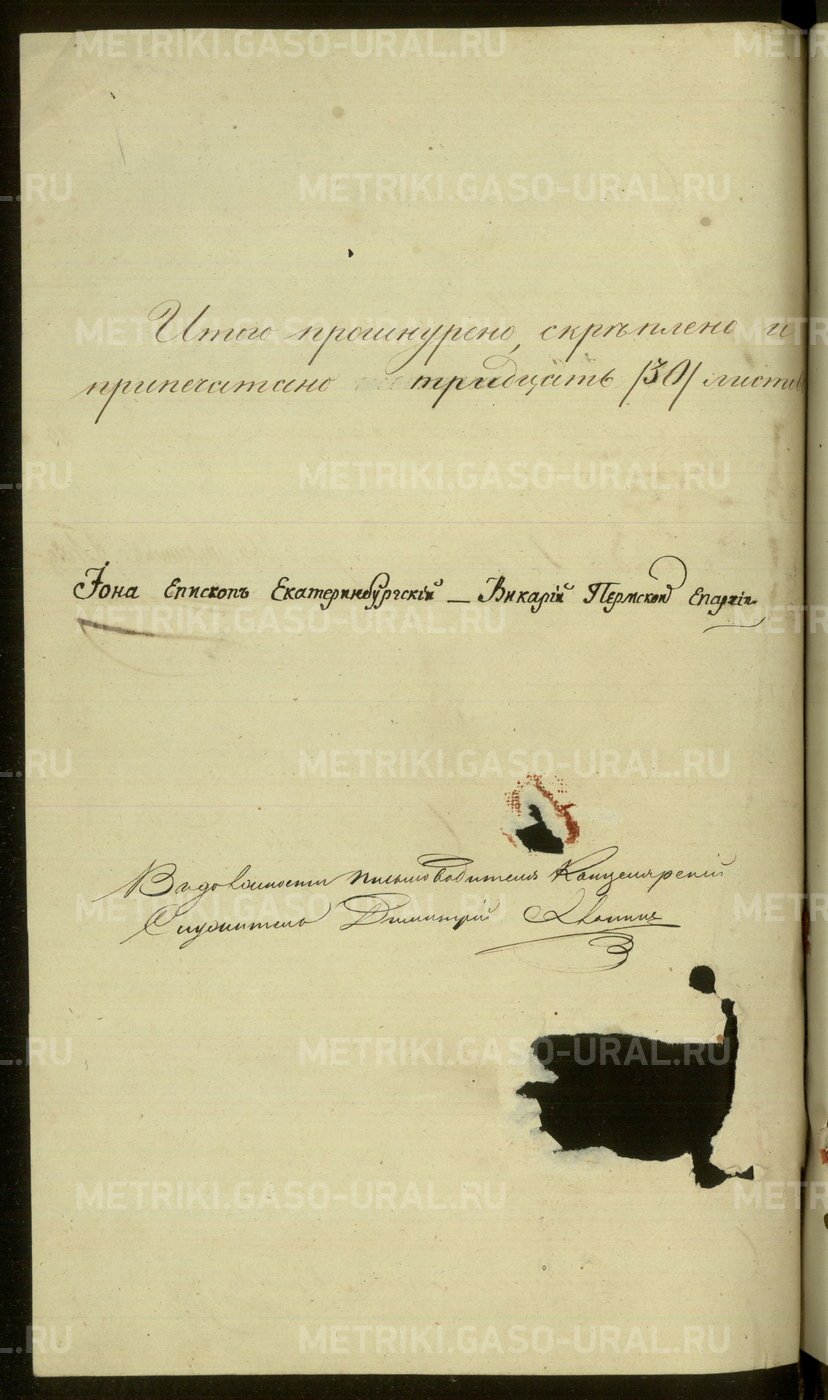 METRIKI.GASO-URAL.RU
Итого прошнурено, скрѣплено и
припечатано тридцать /30/ листовъ
Іона Епископъ Екатеринбургскій – Викарій Пермской Епархіи.
В должности письмоводителя Канцелярскій
Служитель Димитрій